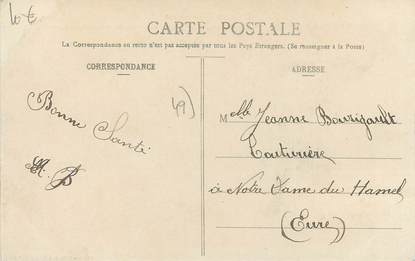 CARTE POSTALE
La Correspondance au recto n'est pas acceptée par tous les Pays Etrangers. (Se renseigner à la Poste)
CORRESPONDANCE
Bonne
Santé
B
49)
ADRESSE
Melle Jeanne Bourigault
Couturière
à Notre Dame du Hamel
(Eure)